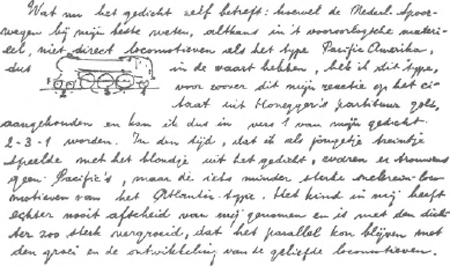 Wat nu het gedicht zelf betreft: hoewel de Nederl. Spoor-
wegen bij mijn beste weten, althans in 't vooroorlogsche materi-
eel, niet direct locomotieven als het type Pacific Amerika,
dus in de vaart hebben, heb ik dit type,
voor zoover dit mijn reactie op het ci-
2 3 1 taat uit Honegger's partituur gold,
aangehouden en kan ik dus in vers 1 van mijn gedicht
2-3-1 worden. In den tijd, dat ik als jongetje treintje
speelde met het blondje uit het gedicht, waren er trouwens
geen Pacific's, maar de iets minder sterke sneltrein-loco-
motieven van het Atlantic-type. Het kind in mij heeft
echter nooit afscheid van mij genomen en is met den dich-
ter zoo sterk vergroeid, dat het parallel kon blijven met
den groei en de ontwikkeling van de geliefde locomotieven.